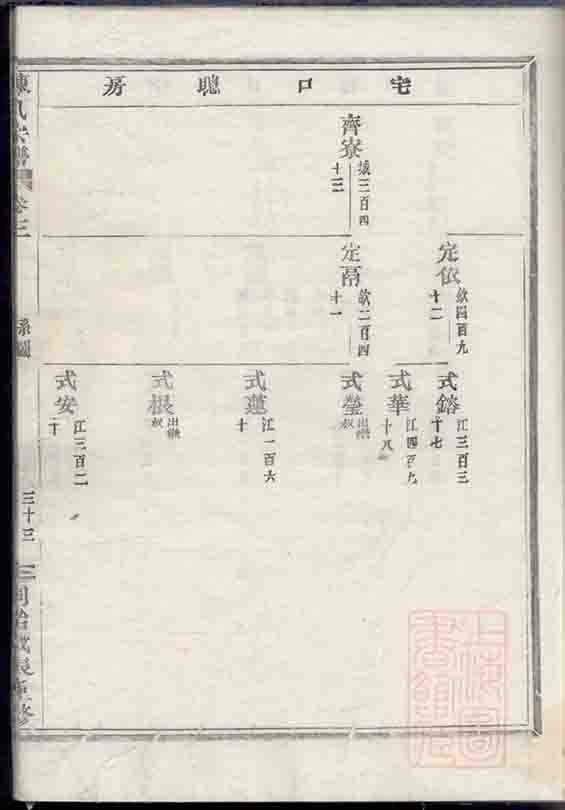 宅口聰房
齊寮
張三百四
十三
定依
欽四百九
十二
定鬲
欽二百四
十一
式鎔
江三百三
十七
式華
江四百九
十八
式瑩
出繼
叔
式蓮
江一百六
十
式根
出繼
叔
式安
江三百二
十
陳氏宗譜
卷三
系圖
三十三
重修
上海圖
書館